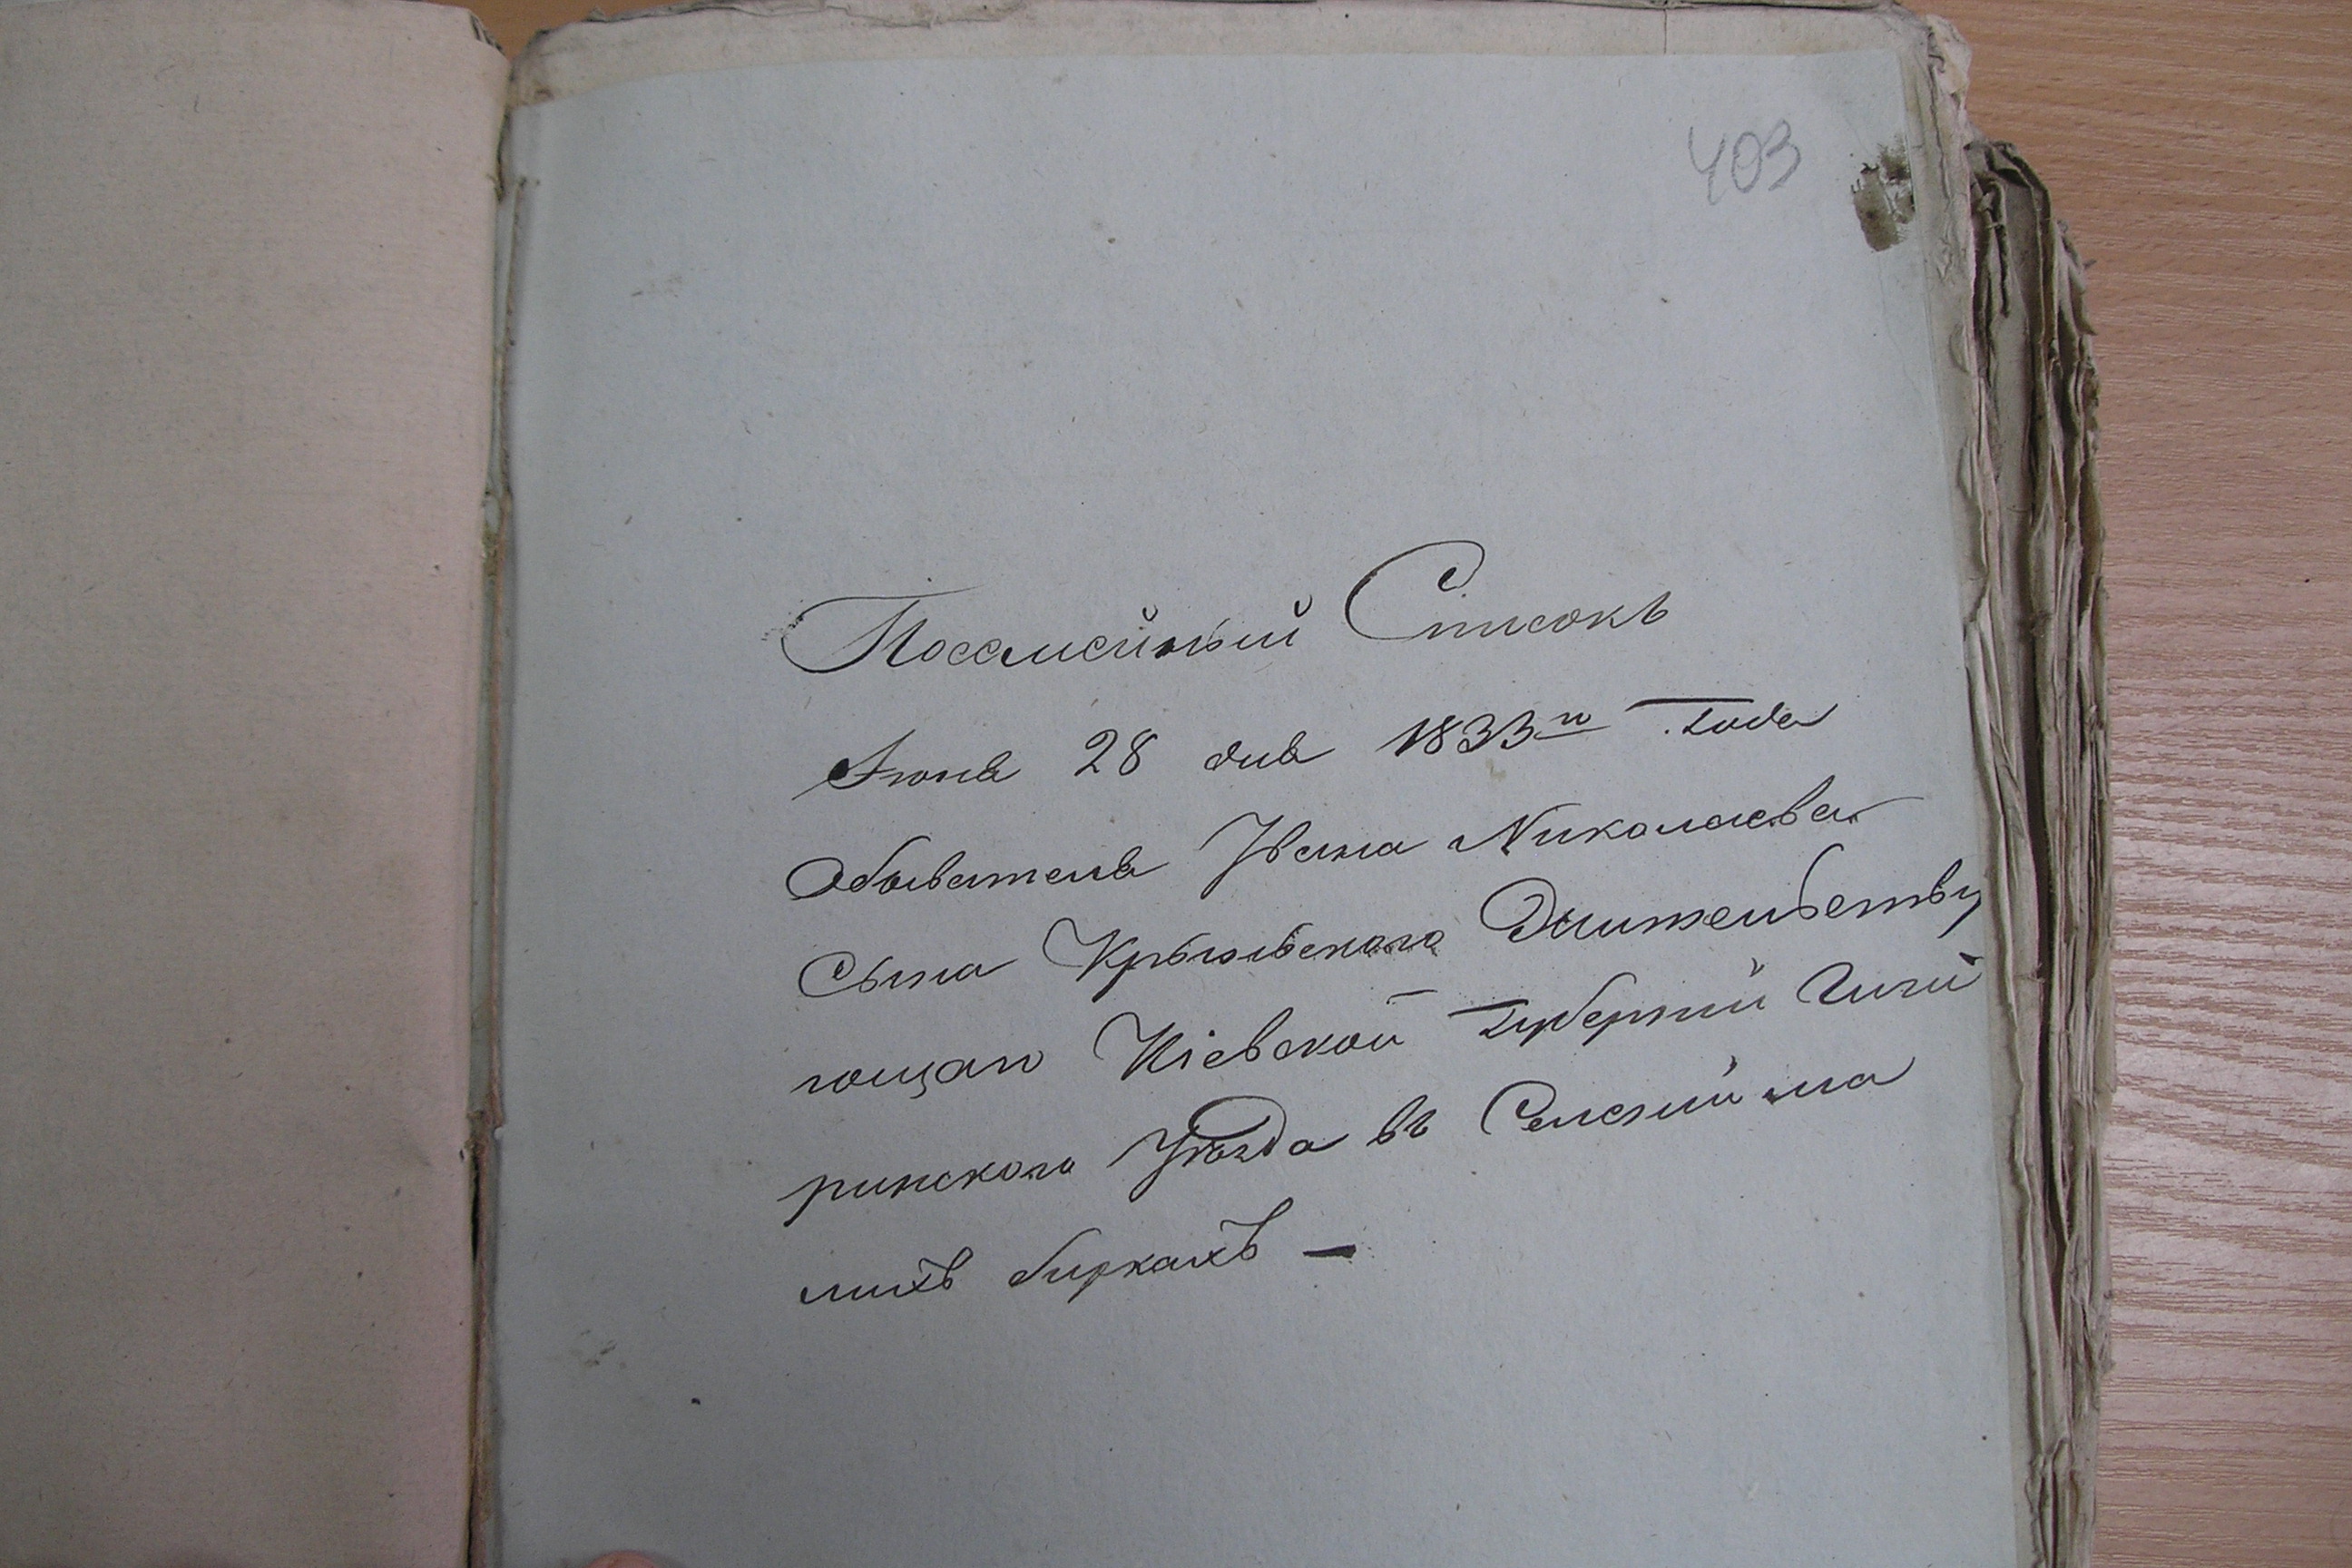 403
Посемейный Списокъ
Июня 28 дня 1833го Года
Обывателя Ивана Николаева
Сына Крыжевскаго Жительству
ющаго Кіевской Губерніи Чиги
ринскаго Уѣзда въ Селеніи ма
лихъ биркахъ —